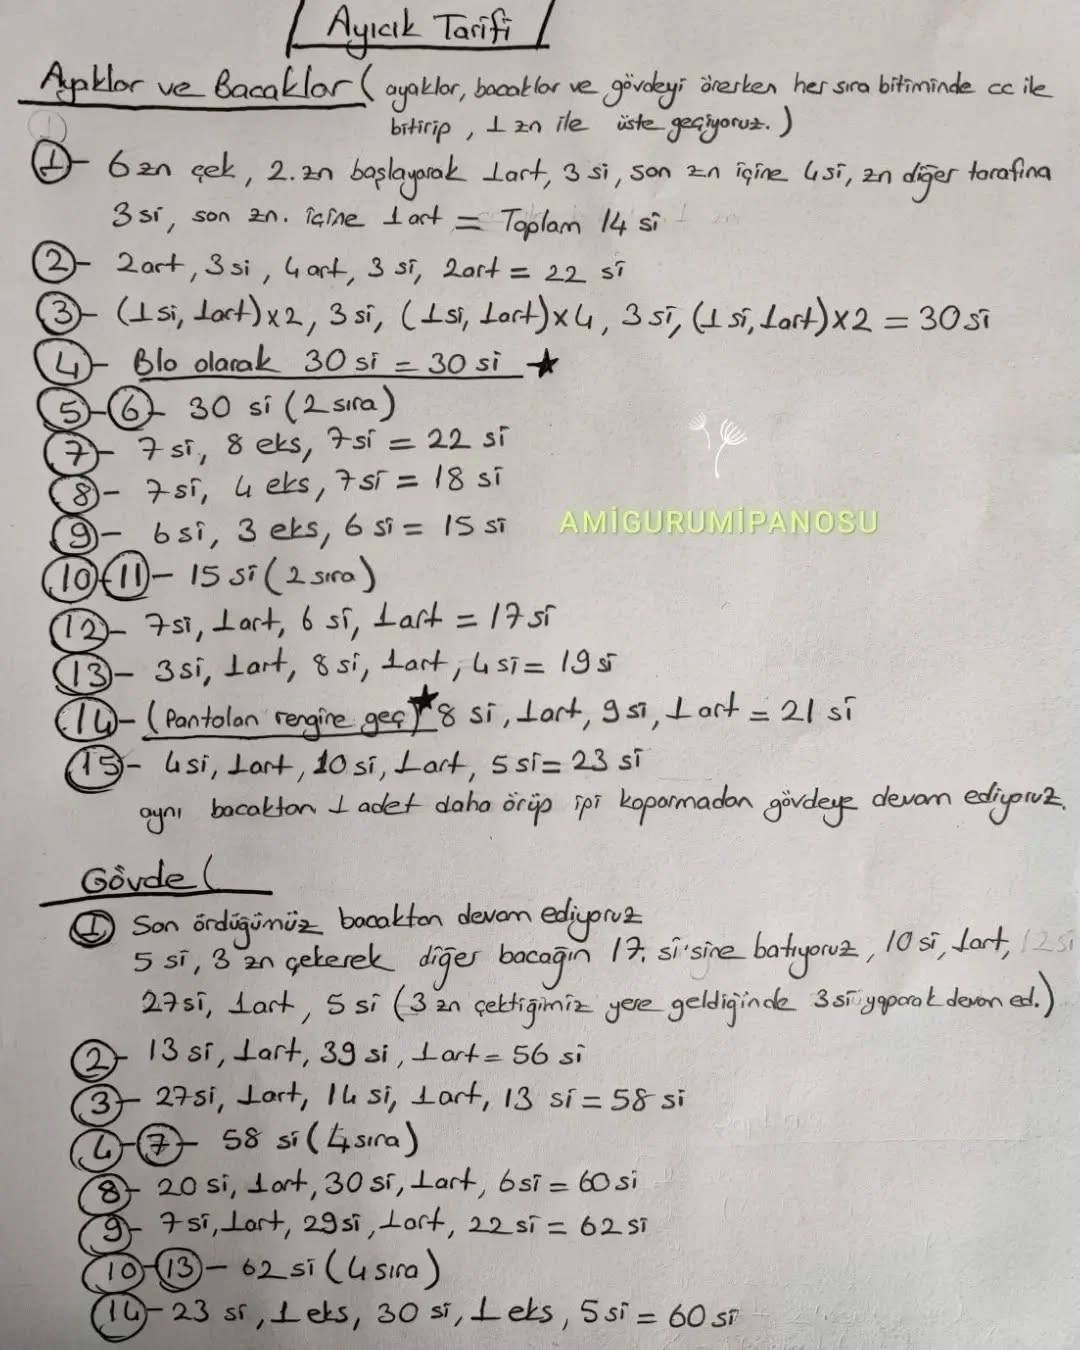 Ayıcık Tarifi
Ayaklar ve Bacaklar ( ayaklar, bacaklar ve gövdeyi örerken her sıra bitiminde cc ile
bitirip, 1 zn ile üste geçiyoruz. )
1- 6 zn çek, 2. zn başlayarak 1art, 3 si, son zn içine 4si, zn diğer tarafına
3 si, son zn. içine 1 art = Toplam 14 si
2- 2art, 3 si, 4 art, 3 si, 2art = 22 si
3- (1 si, 1art)x2, 3 si, (1si, 1art)x4, 3 si, (1 si, 1art)x2 = 30 si
4- Blo olarak 30 si = 30 si ★
5-6- 30 si (2 sıra)
7- 7 si, 8 eks, 7si = 22 si
8- 7si, 4 eks, 7si = 18 si
9- 6si, 3 eks, 6 si = 15 si
AMİGURUMİPANOSU
10-11- 15 si (2 sıra)
12- 7si, 1art, 6 si, 1art = 17 si
13- 3si, 1art, 8 si, 1art, 4 si = 19 si
14- (Pantolon rengine geç)★ 8 si, 1art, 9 si, 1 art = 21 si
15- 4si, 1art, 10 si, 1art, 5 si = 23 si
aynı bacaktan 1 adet daha örüp ipi koparmadan gövdeye devam ediyoruz.
Gövde (
1 Son ördüğümüz bacaktan devam ediyoruz
5 si, 3 zn çekerek diğer bacağın 17. si'sine batıyoruz, 10 si, 1art, 12 si
27si, 1art, 5 si (3 zn çektiğimiz yere geldiğinde 3 si yaparak devam ed.)
2- 13 si, 1art, 39 si, 1art = 56 si
3- 27si, 1art, 14 si, 1art, 13 si = 58 si
4-7- 58 si (4 sıra)
8- 20 si, 1art, 30 si, 1art, 6 si = 60 si
9- 7 si, 1art, 29 si, 1art, 22 si = 62 si
10-13- 62 si (4 sıra)
14- 23 si, 1 eks, 30 si, 1 eks, 5 si = 60 si